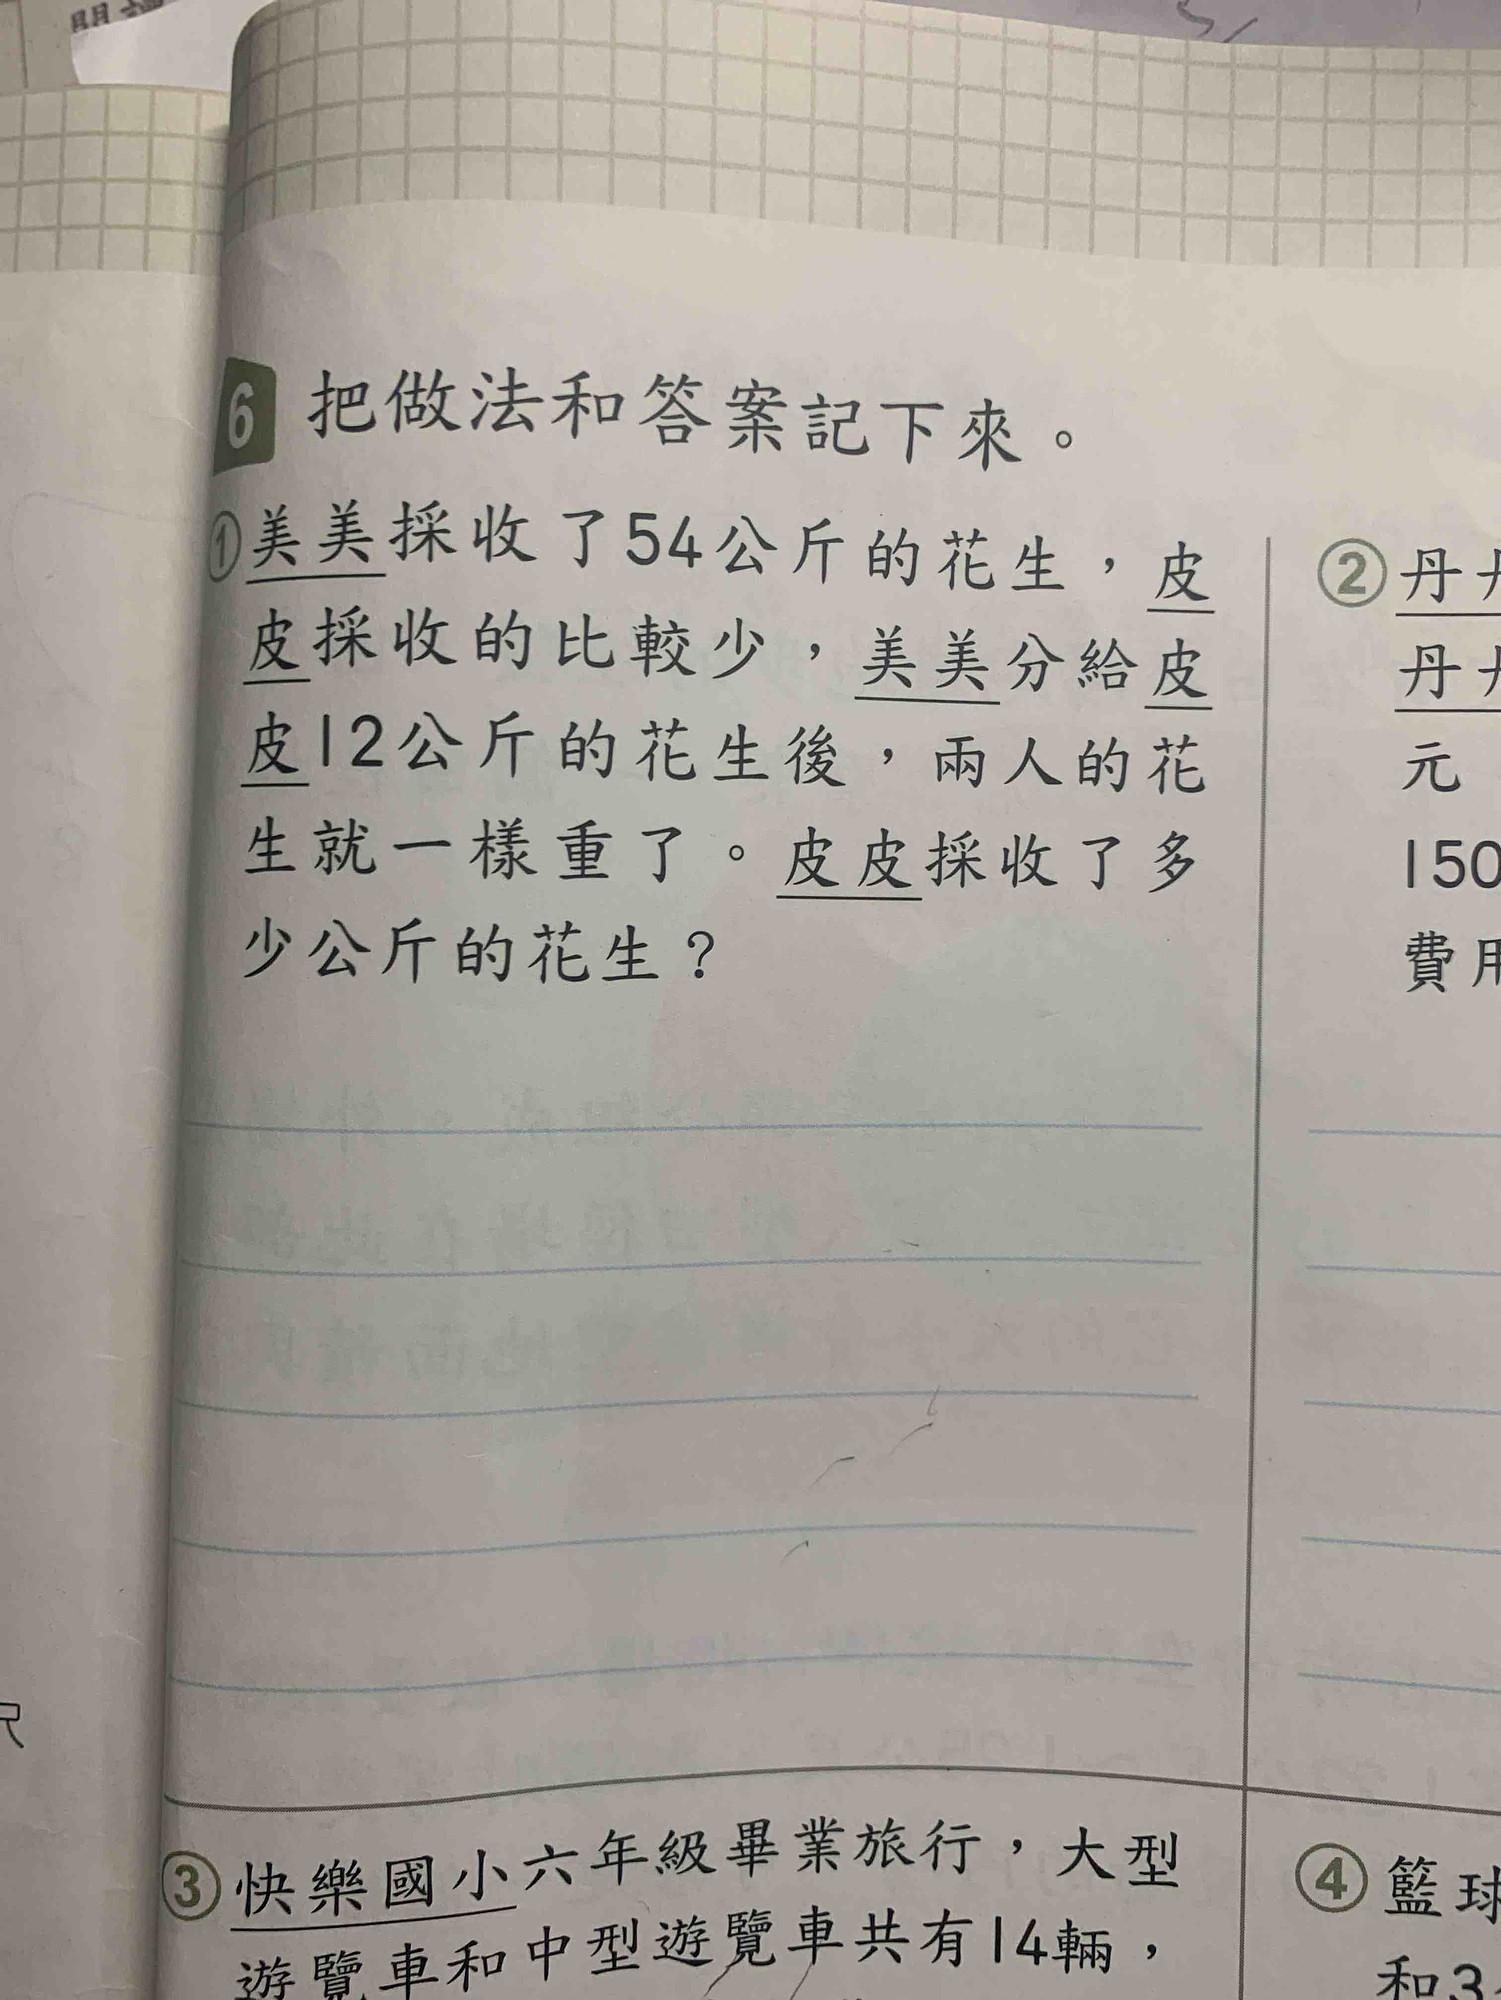 6 把做法和答案記下來。
①美美採收了54公斤的花生，皮
皮採收的比較少，美美分給皮
皮12公斤的花生後，兩人的花
生就一樣重了。皮皮採收了多
少公斤的花生？
②丹
丹
元
150
費用
③快樂國小六年級畢業旅行，大型
遊覽車和中型遊覽車共有14輛，
④籃球
和3